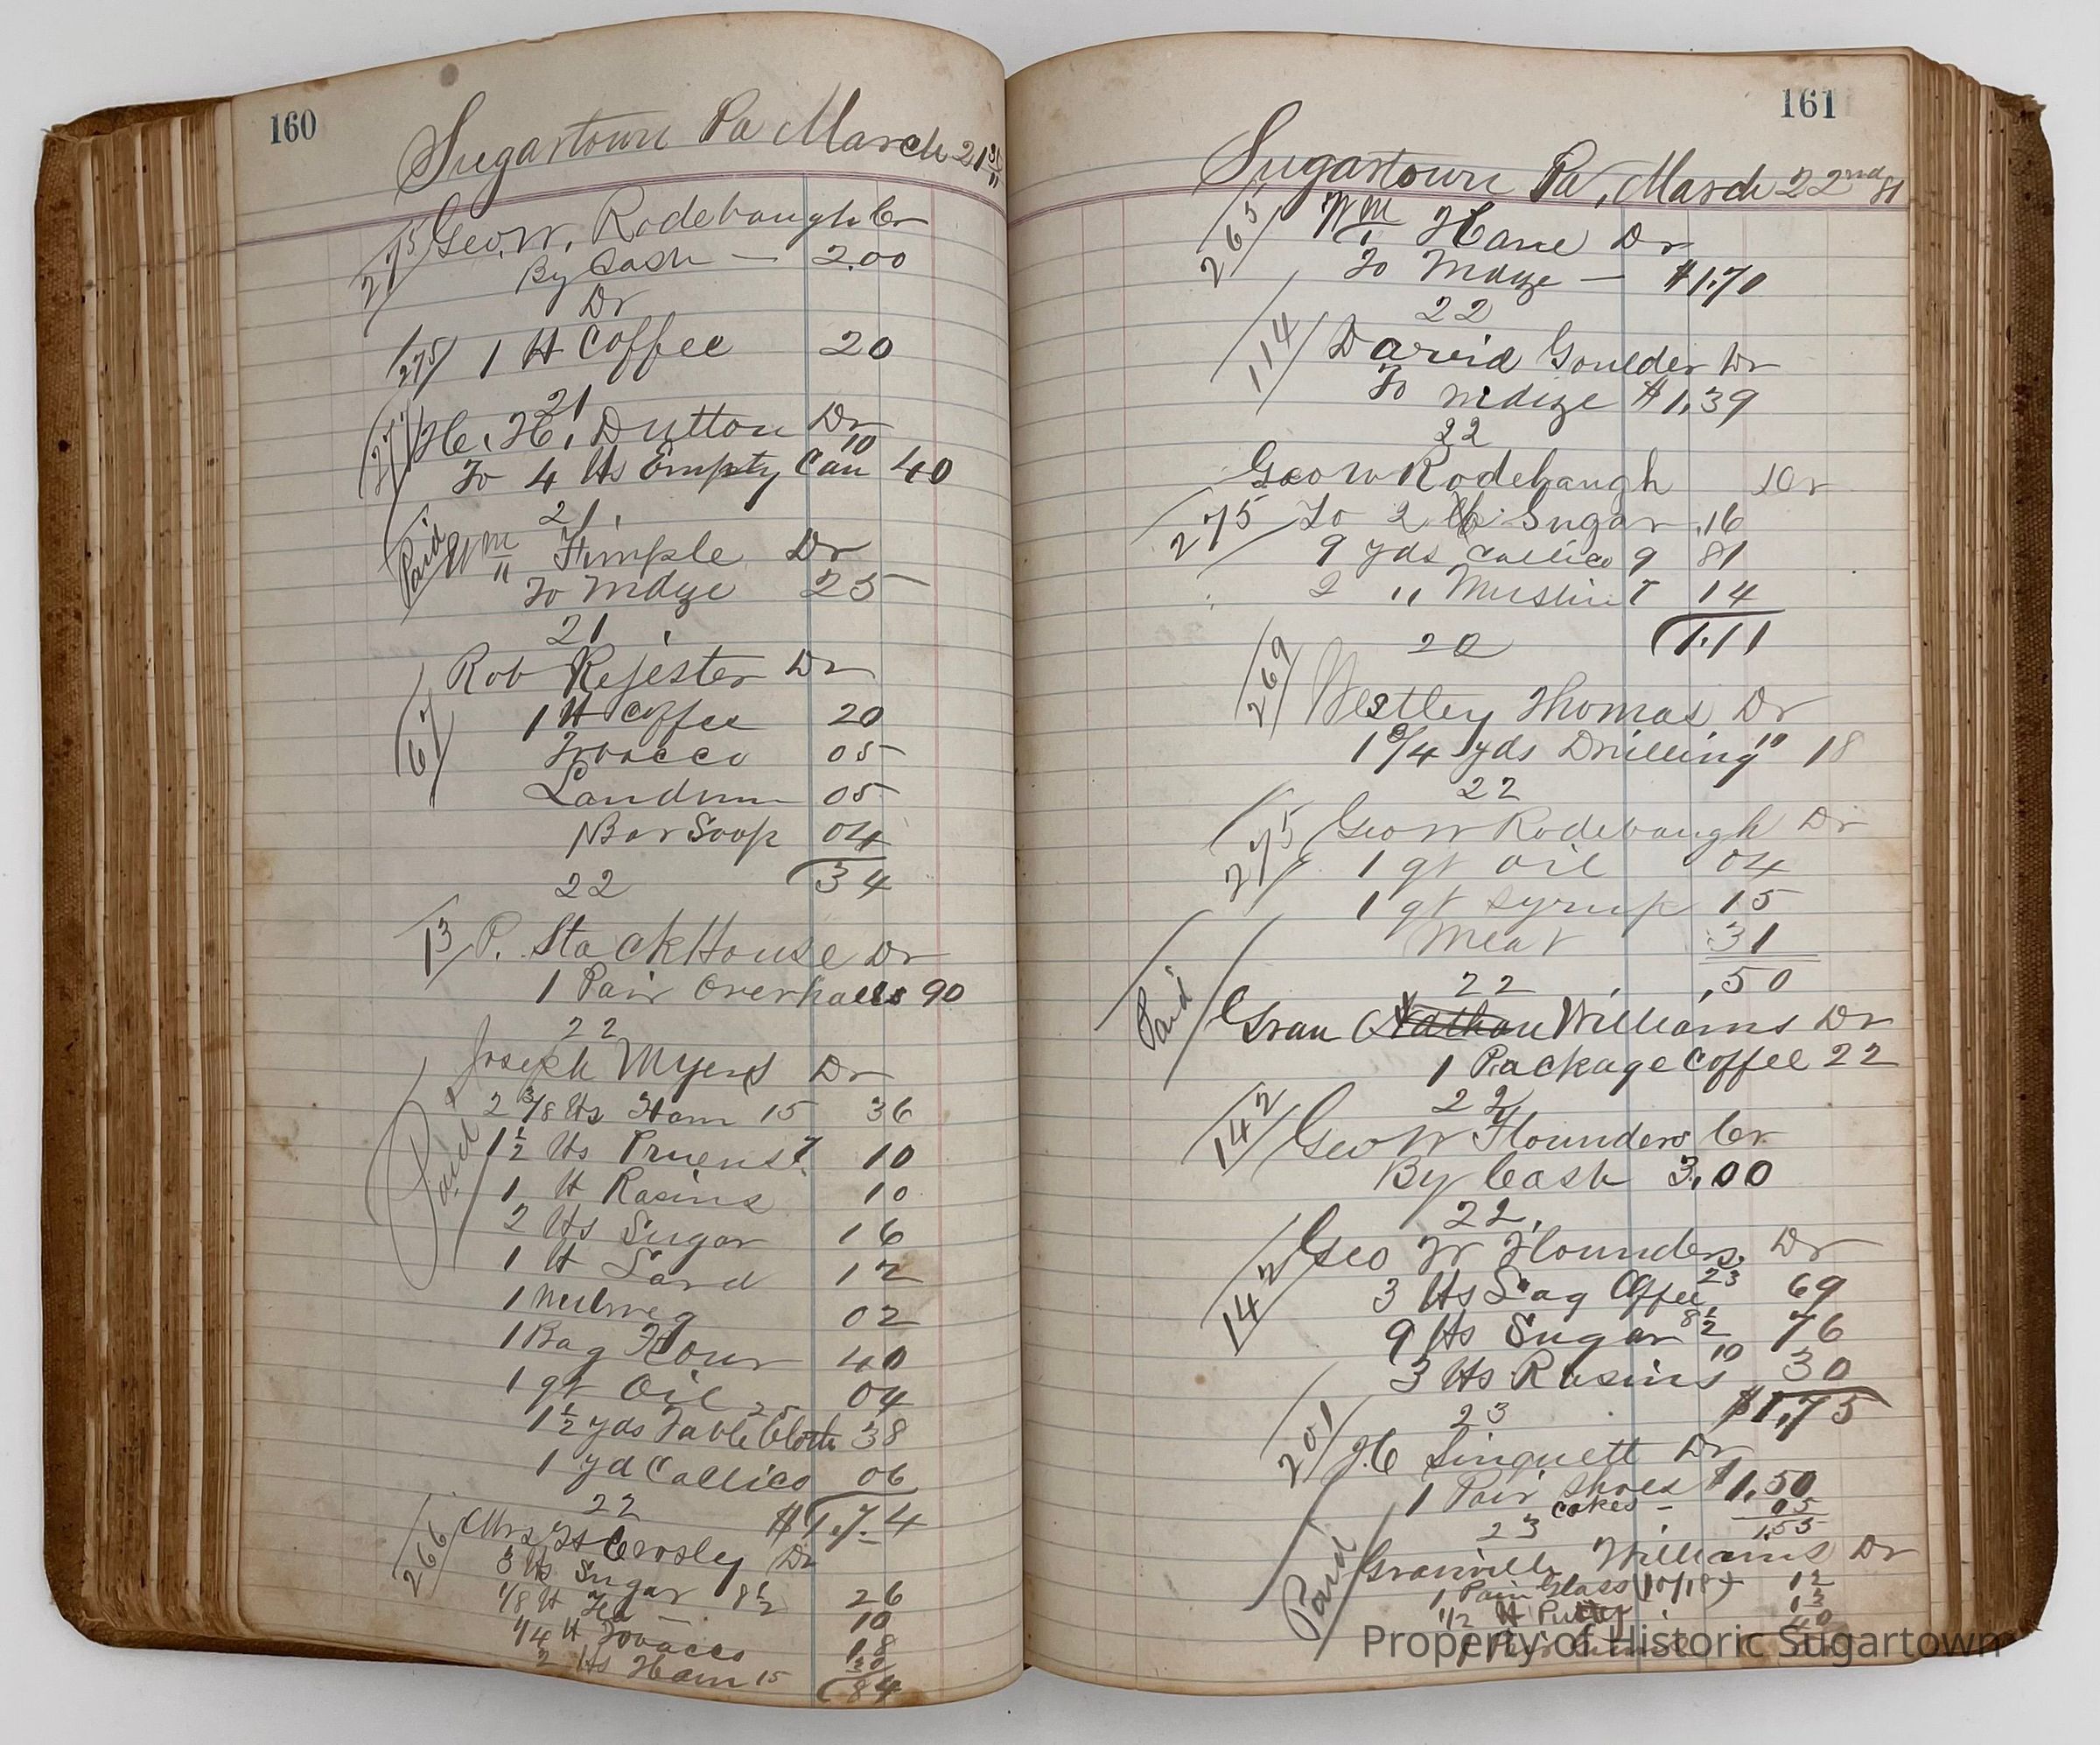 160
Sugartown Pa March 21st
275 Geo. W. Rodebaugh Cr
By Cash — 2.00
Dr
275 1 lb Coffee 20
21
H. H. Dutton Dr
To 4 lbs Empty Can 10 40
21
Paid Wm Fimple Dr
To Mdze 25
21
67 Rob Rejester Dr
1 lb Coffee 20
Tobacco 05
Laudnum 05
1 Bar Soop 04
22 34
13 P. StackHouse Dr
1 Pair Overhalls 90
22
Joseph Myers Dr
2 3/8 lbs Ham 15 36
Paid 1 1/2 lbs Pruens 7 10
1 lb Rasins 10
2 lbs Sugar 16
1 lb Lard 12
1 nutmeg 02
1 Bag Flour 40
1 qt Oil 04
1 1/2 yds Table Cloth 25 38
1 yd Callico 06
22 $1.74
266 Mrs Crosley Dr
3 lbs Sugar 8 1/2 26
1/8 lb Tea — 10
1/4 lb Tobacco 18
2 lbs Ham 15 30
84
161
Sugartown Pa, March 22nd 81
265 Wm Hane Dr
To Mdze — $1.70
22
114 David Goulder Dr
To Mdize $1.39
22
Geo W Rodebaugh Dr
275 To 2 lb Sugar .16
9 yds Callico 9 81
2 " Muslin 7 14
20 1.11
269 Westley Thomas Dr
1 3/4 yds Drilling 10 18
22
275 Geo W Rodebaugh Dr
1 qt Oil 04
1 qt Syrup 15
Meat 31
22 .50
Paid Gran Nathan Williams Dr
1 Package Coffee 22
22
142 Geo W Flounders Cr
By Cash 3.00
22
142 Geo W Flounders Dr
3 lbs Lag Coffee 23 69
9 lbs Sugar 8 1/2 76
3 lbs Rasins 10 30
23 $1.75
201 J.C Sinquett Dr
1 Pair Shoes $1.50
cakes — 05
23 1.55
Paid Granvill Williams Dr
1 Pain Glass (10/18) 12
1/2 lb Putty 13
1 Pair 40
Property of Historic Sugartown